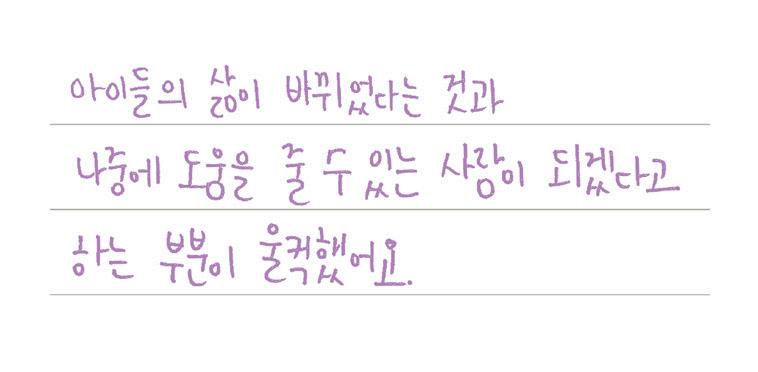 아이들의 삶이 바뀌었다는 것과
나중에 도움을 줄 수 있는 사람이 되겠다고
하는 부분이 울컥했어요.